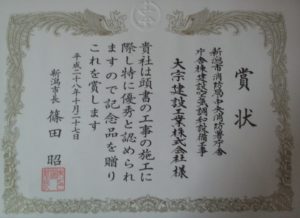 賞状
新潟市消防局中央消防署庁舎
庁舎棟建設空気調和設備工事
大宗建設工業株式会社様
貴社は頭書の工事の施工に
際し特に優秀と認められ
ますので記念品を贈り
これを賞します
平成二十八年十月二十七日
新潟市長 篠田 昭